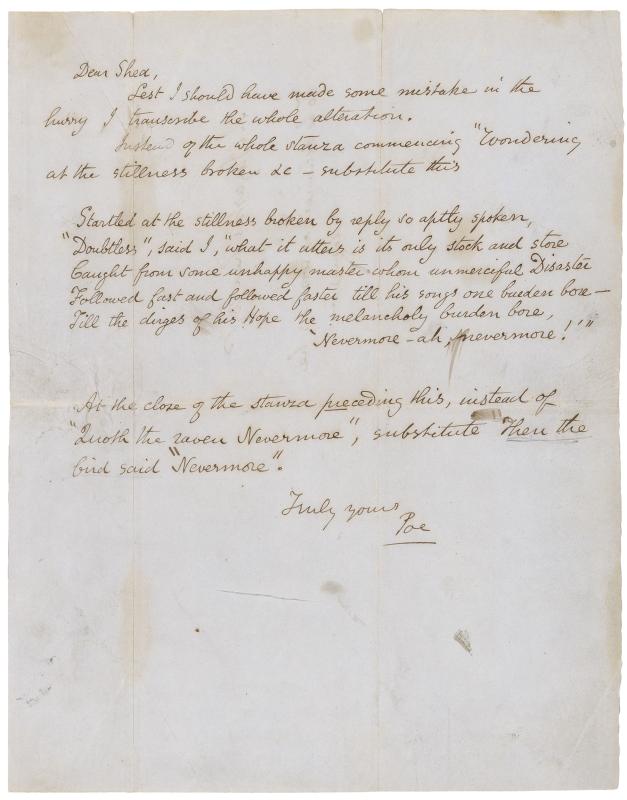 Dear Shea,
Lest I should have made some mistake in the
hurry I transcribe the whole alteration.
Instead of the whole stanza commencing "Wondering
at the stillness broken &c – substitute this
Startled at the stillness broken by reply so aptly spoken,
"Doubtless", said I, "what it utters is its only stock and store
Caught from some unhappy master whom unmerciful Disaster
Followed fast and followed faster till his songs one burden bore –
Till the dirges of his Hope the melancholy burden bore,
'Nevermore – ah, nevermore!'"
At the close of the stanza preceding this, instead of
"Quoth the raven Nevermore", substitute "Then the
bird said "Nevermore".
Truly yours
Poe